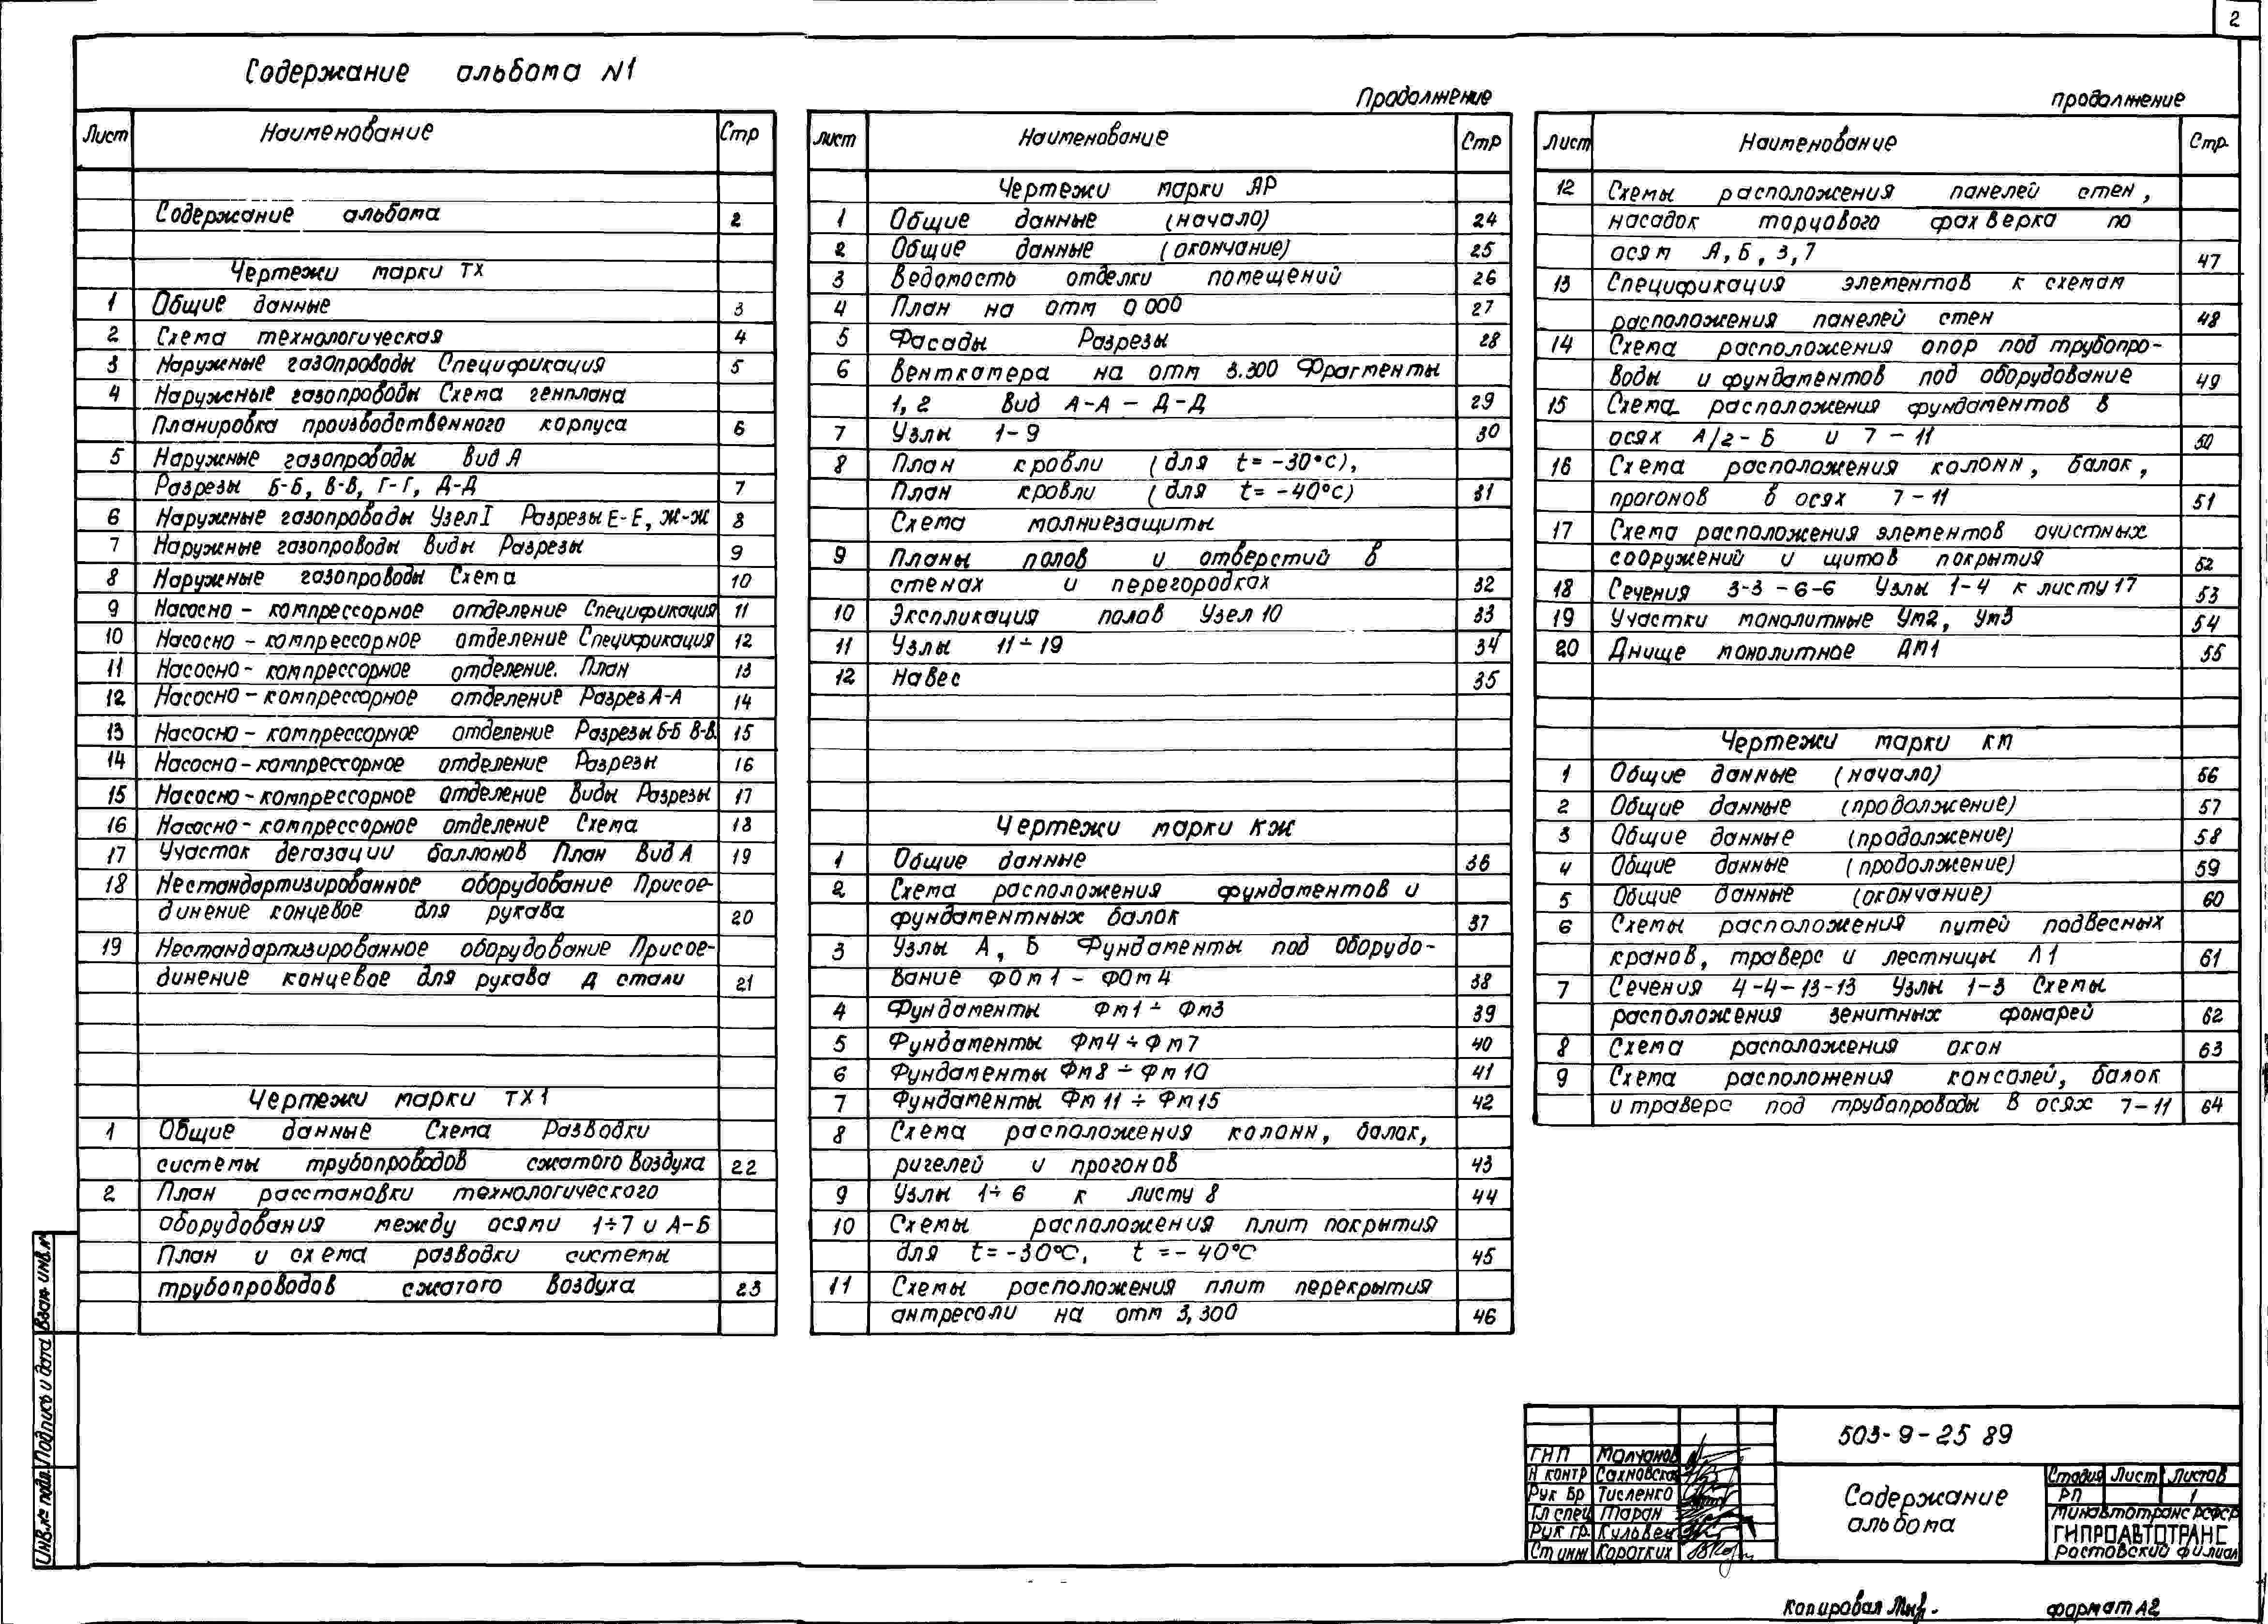 2
Содержание альбома N1
Лист Наименование Стр
Содержание альбома 2
Чертежи марки ТХ
1 Общие данные 3
2 Схема технологическая 4
3 Наружные газопроводы Спецификация 5
4 Наружные газопроводы Схема генплана
Планировка производственного корпуса 6
5 Наружные газопроводы Вид А
Разрезы Б-Б, В-В, Г-Г, Д-Д 7
6 Наружные газопроводы Узел I Разрезы Е-Е, Ж-Ж 8
7 Наружные газопроводы Виды Разрезы 9
8 Наружные газопроводы Схема 10
9 Насосно-компрессорное отделение Спецификация 11
10 Насосно-компрессорное отделение Спецификация 12
11 Насосно-компрессорное отделение. План 13
12 Насосно-компрессорное отделение Разрез А-А 14
13 Насосно-компрессорное отделение Разрезы Б-Б В-В. 15
14 Насосно-компрессорное отделение Разрезы 16
15 Насосно-компрессорное отделение Виды Разрезы 17
16 Насосно-компрессорное отделение Схема 18
17 Участок дегазации баллонов План Вид А 19
18 Нестандартизированное оборудование Присое-
динение концевое для рукава 20
19 Нестандартизированное оборудование Присое-
динение концевое для рукава Д стали 21
Чертежи марки ТХ1
1 Общие данные Схема Разводки
системы трубопроводов сжатого воздуха 22
2 План расстановки технологического
оборудования между осями 1÷7 и А-Б
План и схема разводки системы
трубопроводов сжатого воздуха 23
Продолжение
Лист Наименование Стр
Чертежи марки АР
1 Общие данные (начало) 24
2 Общие данные (окончание) 25
3 Ведомость отделки помещений 26
4 План на отм 0 000 27
5 Фасады Разрезы 28
6 Венткамера на отм 3.300 Фрагменты
1, 2 Вид А-А – Д-Д 29
7 Узлы 1-9 30
8 План кровли (для t= -30°С),
План кровли (для t= -40°С) 31
Схема молниезащиты
9 Планы полов и отверстий в
стенах и перегородках 32
10 Экспликация полов Узел 10 33
11 Узлы 11÷19 34
12 Навес 35
Чертежи марки КЖ
1 Общие данные 36
2 Схема расположения фундаментов и
фундаментных балок 37
3 Узлы А, Б Фундаменты под оборудо-
вание ФОм1 - ФОм4 38
4 Фундаменты Фм1 ÷ Фм3 39
5 Фундаменты Фм4 ÷ Фм7 40
6 Фундаменты Фм8 ÷ Фм10 41
7 Фундаменты Фм11 ÷ Фм15 42
8 Схема расположения колонн, балок,
ригелей и прогонов 43
9 Узлы 1÷6 к листу 8 44
10 Схемы расположения плит покрытия
для t= -30°С, t = - 40°С 45
11 Схемы расположения плит перекрытия
антресоли на отм 3,300 46
продолжение
Лист Наименование Стр.
12 Схемы расположения панелей стен,
насадок торцового фахверка по
осям А, Б, 3, 7 47
13 Спецификация элементов к схемам
расположения панелей стен 48
14 Схема расположения опор под трубопро-
воды и фундаментов под оборудование 49
15 Схема расположения фундаментов в
осях А/2-Б и 7-11 50
16 Схема расположения колонн, балок,
прогонов в осях 7-11 51
17 Схема расположения элементов очистных
сооружений и щитов покрытия 52
18 Сечения 3-3 - 6-6 Узлы 1-4 к листу 17 53
19 Участки монолитные Ум2, Ум3 54
20 Днище монолитное Дм1 55
Чертежи марки КМ
1 Общие данные (начало) 56
2 Общие данные (продолжение) 57
3 Общие данные (продолжение) 58
4 Общие данные (продолжение) 59
5 Общие данные (окончание) 60
6 Схемы расположения путей подвесных
кранов, траверс и лестницы Л1 61
7 Сечения 4-4-13-13 Узлы 1-3 Схемы
расположения зенитных фонарей 62
8 Схема расположения окон 63
9 Схема расположения консолей, балок
и траверс под трубопроводы в осях 7-11 64
Взам инв.№
Подпись и дата
Инв.№ подл.
ГНП Молчанов
Н контр Сахновская
Рук Бр Тисленко
Гл спец Таран
Рук гр.
Ст инж Коротких
503-9-25 89
Содержание
альбома
Стадия Лист Листов
РП 1
Минавтотранс РСФСР
ГИПРОАВТОТРАНС
Ростовский филиал
Копировал
формат А2